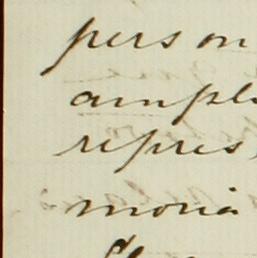 person
ample
repres
moria